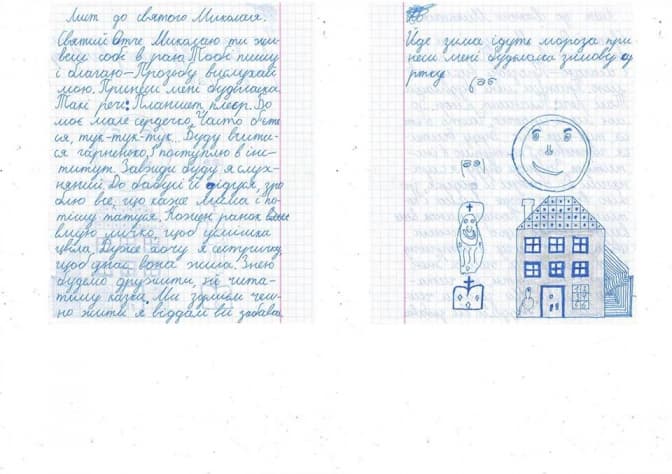 Лист до святого Миколая.
Святий Отче Миколаю ти жи-
веш собі в раю Тобі пишу
і благаю-Прозьбу вислухай
мою. Принеси мені будьласка
Такі речі: Планшет плеєр. Бо
моє мале сердечко, Часто бєть
ся, тук-тук-тук... Буду вчити-
ся гарненько, І поступлю в інс-
титут. Завжди буду я слух-
няний. До бабусі й дідуся, зро
блю все, що каже мама і по-
тішу татуся. Кожен ранок
вмию личко, щоб усмішка
цвіла. Дуже хочу я сестричку,
щоб у нас вона жила. З нею
будемо дружити, їй чита-
тиму казки. Ми зумієм чем-
но жити я віддам їй забавки
Йде зима ідуть мороза при
неси мені будьласка зимову